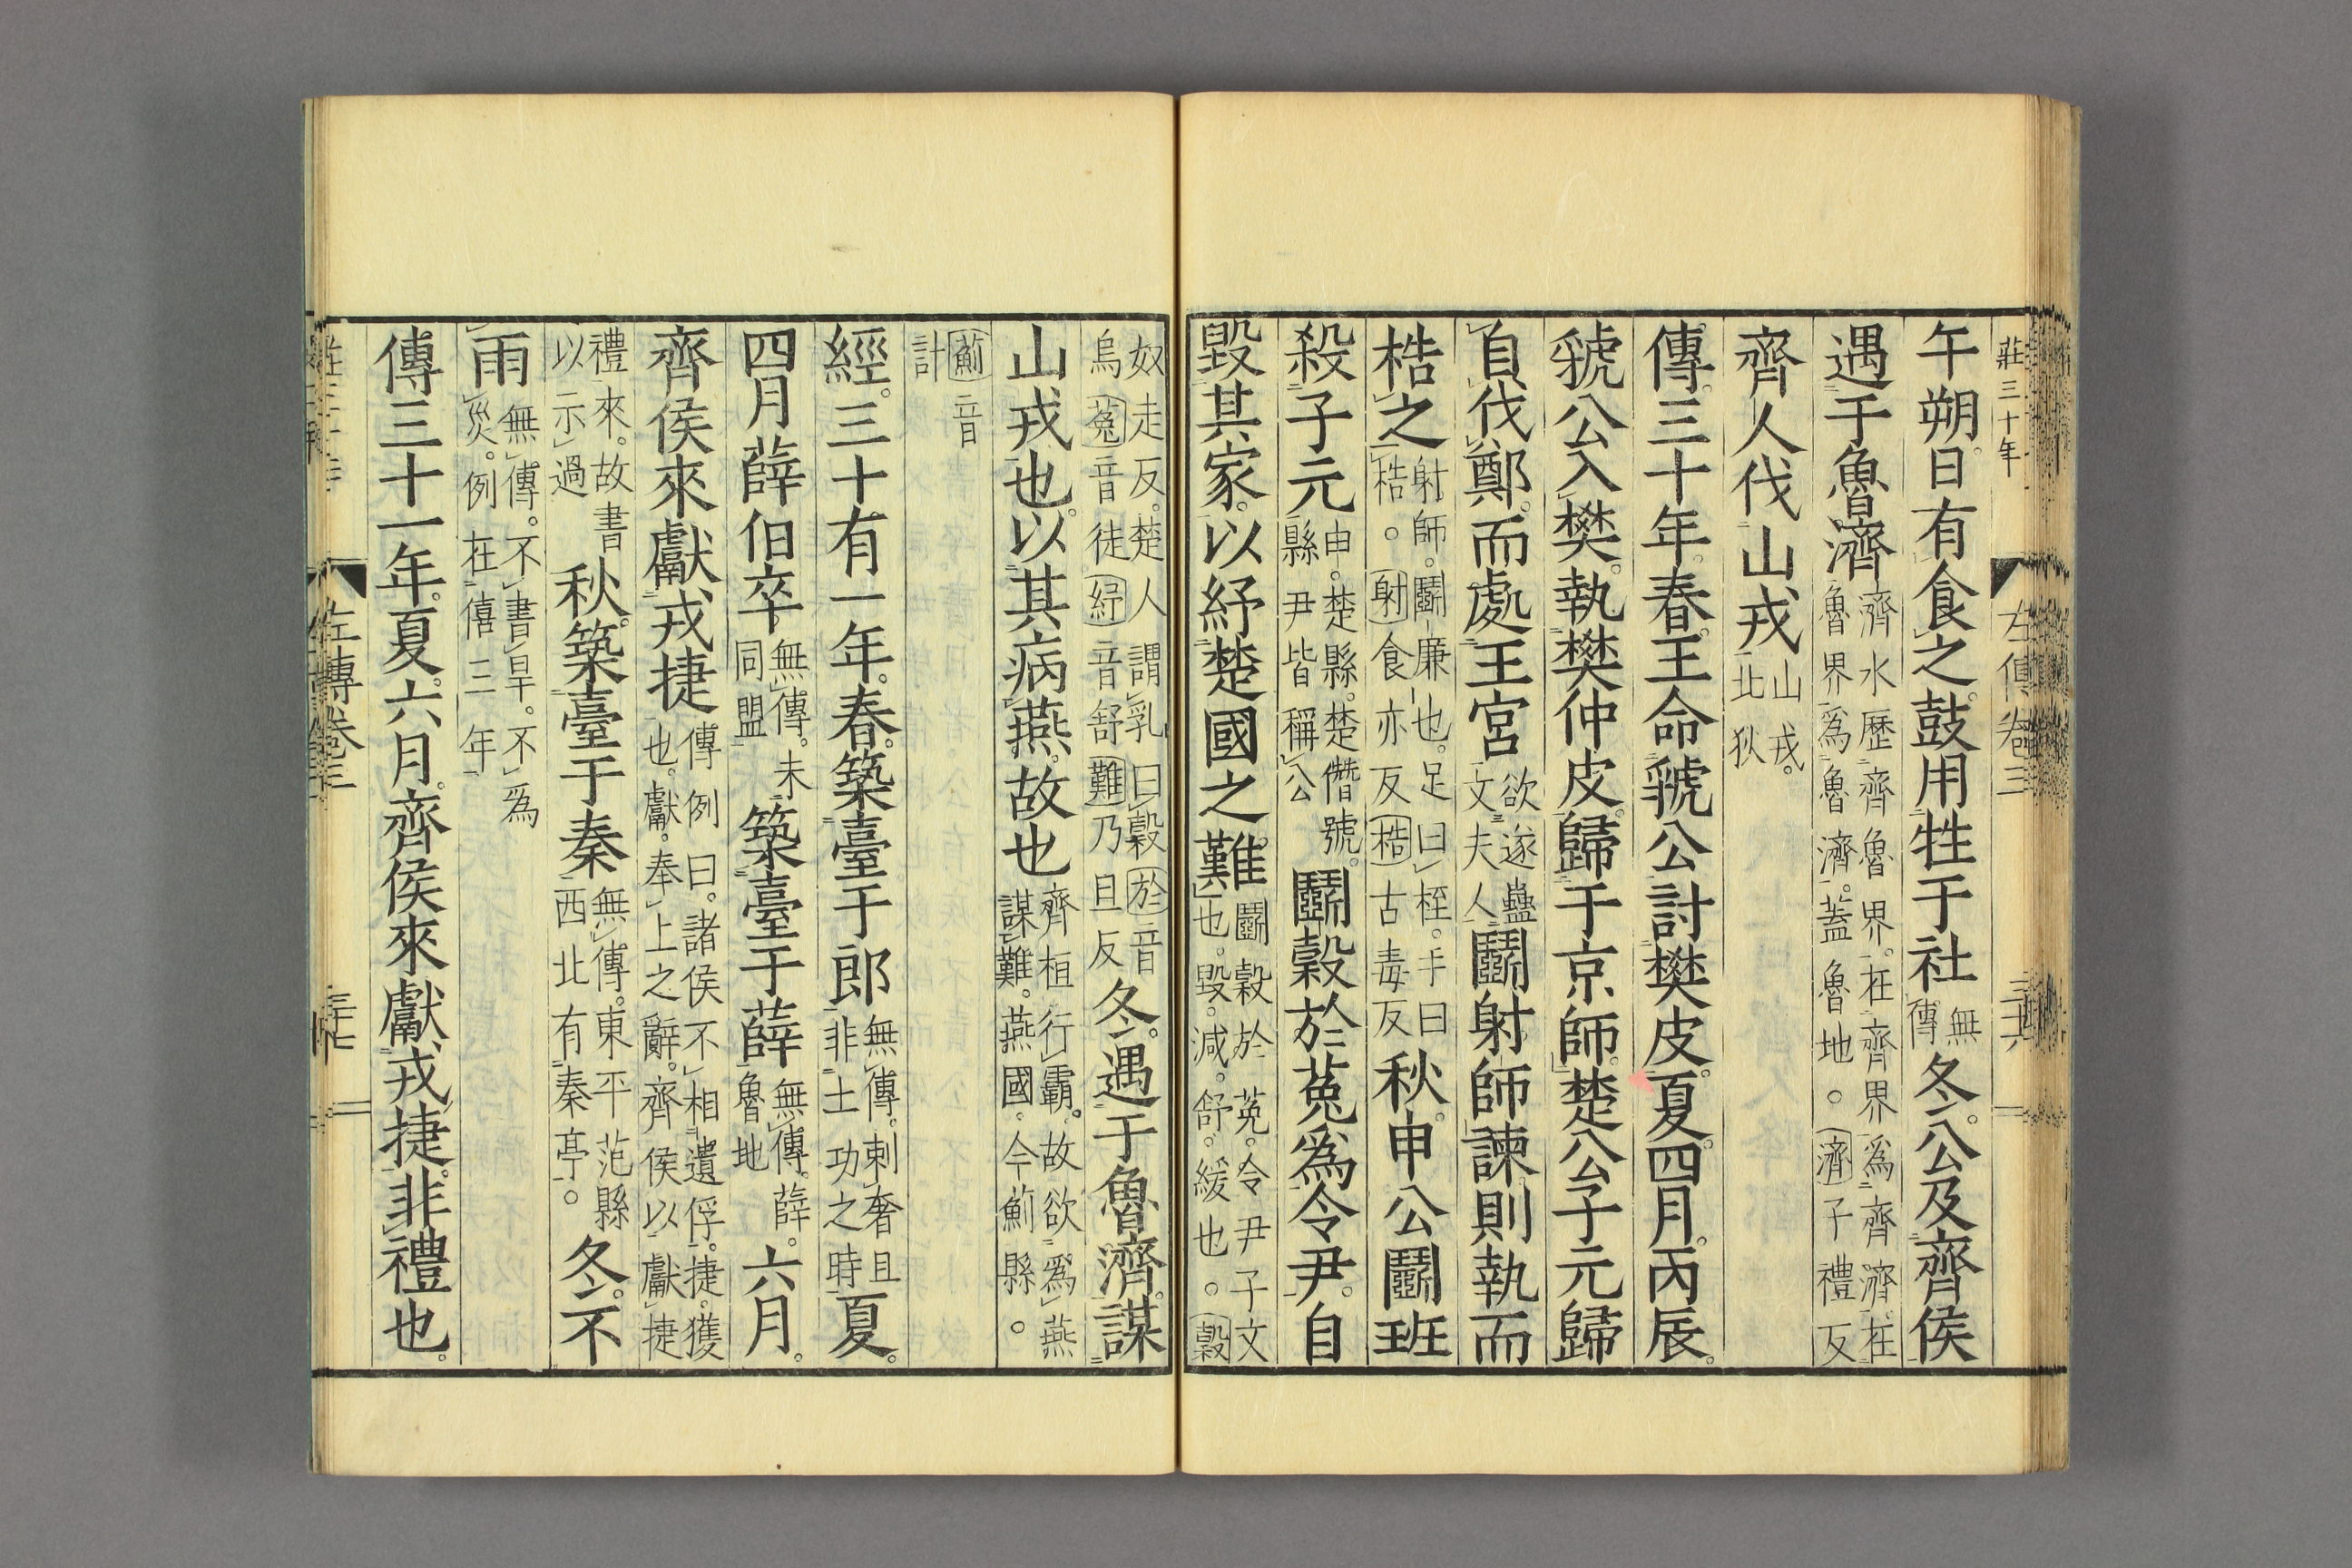 莊三十年
左傳卷三
午朔。日有食之。鼓用牲于社無傳冬。公及齊侯
遇于魯濟齊水歷齊魯界。在齊界爲齊濟。在魯界爲魯濟。蓋魯地。濟子禮反
齊人伐山戎山戎。北狄
傳。三十年。春。王命虢公討樊皮。夏。四月。丙辰。
虢公入樊。執樊仲皮。歸于京師。楚公子元歸
自伐鄭。而處王宮欲遂蠱文夫人鬭射師諫則執而
梏之射師。鬭廉也。足曰桎。手曰梏。射食亦反梏古毒反秋。申公鬭班
殺子元申。楚縣。楚僭號。縣尹皆稱公鬭穀於菟爲令尹。自
毀其家。以紓楚國之難。鬭穀於菟。令尹子文也。毀。減。紓。緩也。穀
奴走反。楚人謂乳曰穀於音烏菟音徒紓音舒難乃且反冬。遇于魯濟。謀
山戎也。以其病燕。故也齊桓行霸。故欲爲燕謀難。燕國。今薊縣。
薊音計
經。三十有一年。春。築臺于郎無傳。刺奢且非土功之時夏。
四月薛伯卒。無傳。未同盟築臺于薛無傳。薛。魯地六月。
齊侯來獻戎捷傳例曰。諸侯不相遺俘。捷。獲也。獻。奉上之辭。齊侯以獻捷
禮來。故書以示過秋。築臺于秦無傳。東平范縣西北有秦亭。冬。不
雨無傳。不書旱。不爲災。例在僖三年
傳三十一年。夏。六月。齊侯來獻戎捷。非禮也。
左傳卷三